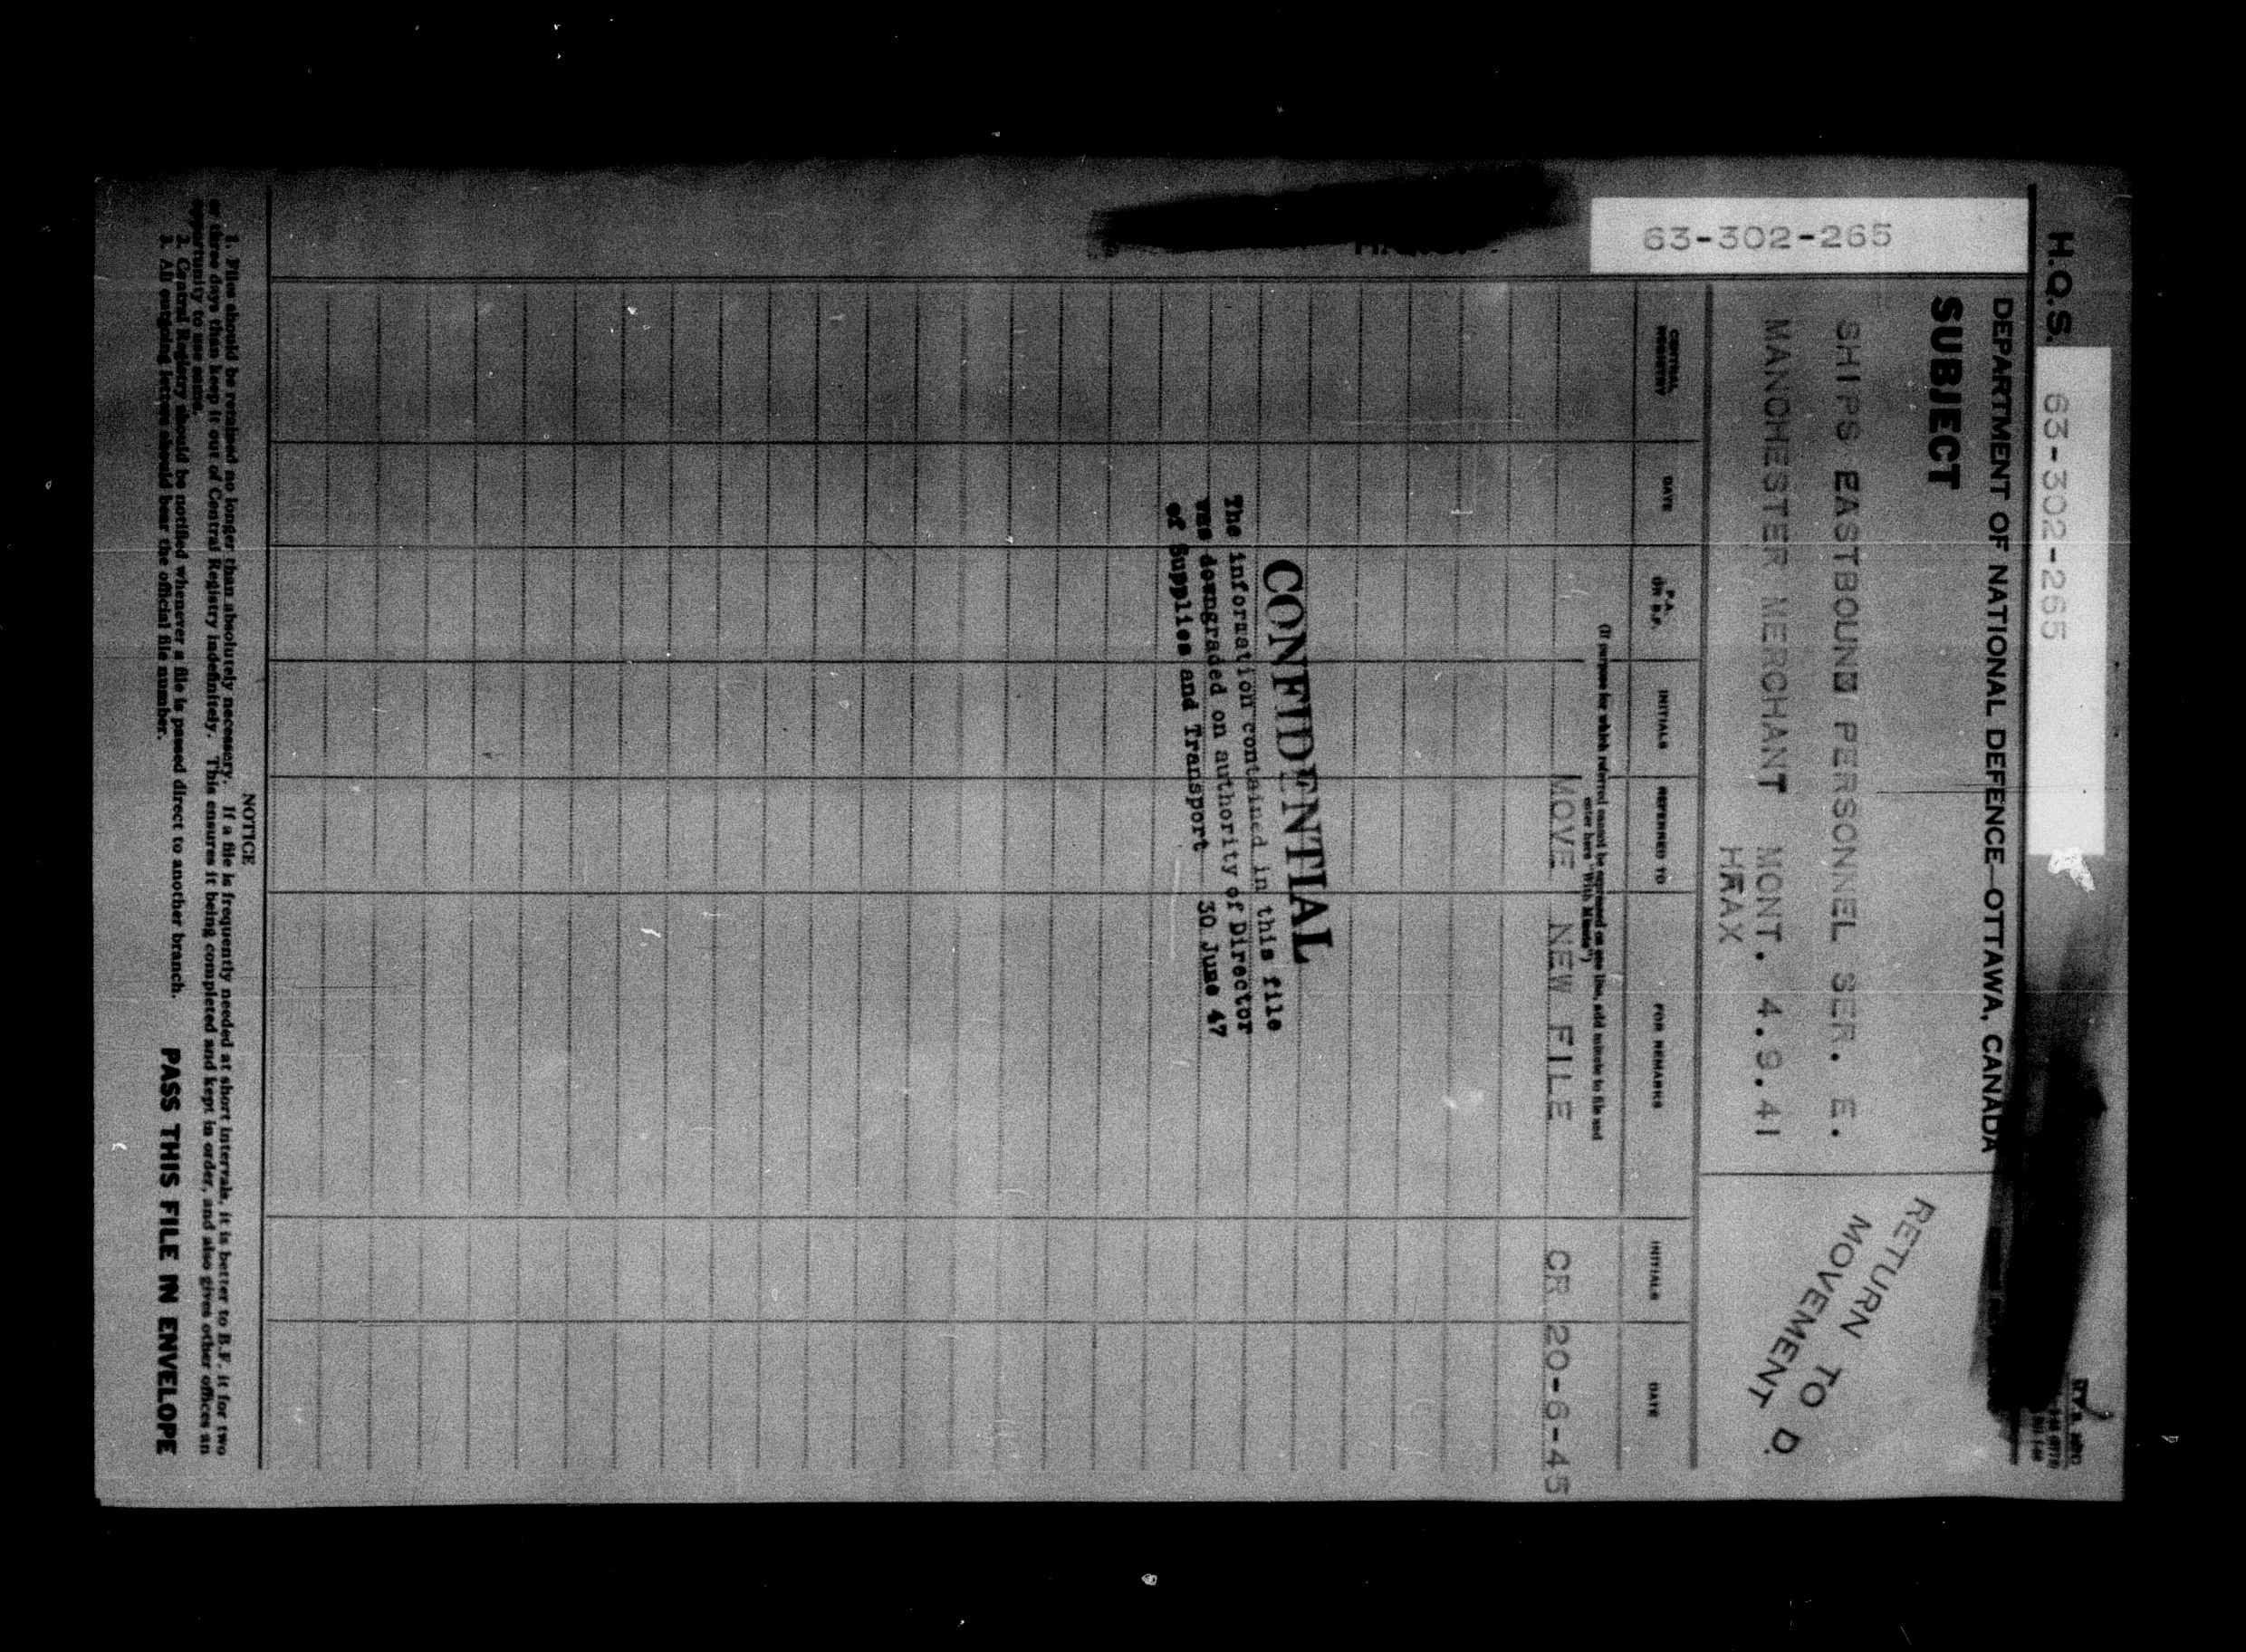 H.Q.S. 63-302-265
DEPARTMENT OF NATIONAL DEFENCE—OTTAWA, CANADA
SUBJECT
SHIPS EASTBOUND PERSONNEL SER. E.
MANCHESTER MERCHANT MONT. 4.9.41
HFAX
RETURN TO D.
MOVEMENT
63-302-265
CENTRAL REGISTRY DATE P.A. OR B.F. INITIALS REFERRED TO FOR REMARKS INITIALS DATE
(If purpose for which referred cannot be expressed on one line, add minute to file and
enter here "With Minute")
MOVE NEW FILE CR 20-6-45
CONFIDENTIAL
The information contained in this file
was downgraded on authority of Director
of Supplies and Transport 30 June 47
NOTICE
1. Files should be retained no longer than absolutely necessary. If a file is frequently needed at short intervals, it is better to B.F. it for two
or three days than keep it out of Central Registry indefinitely. This ensures it being completed and kept in order, and also gives other offices an
opportunity to use same.
2. Central Registry should be notified whenever a file is passed direct to another branch.
3. All outgoing letters should bear the official file number.
PASS THIS FILE IN ENVELOPE